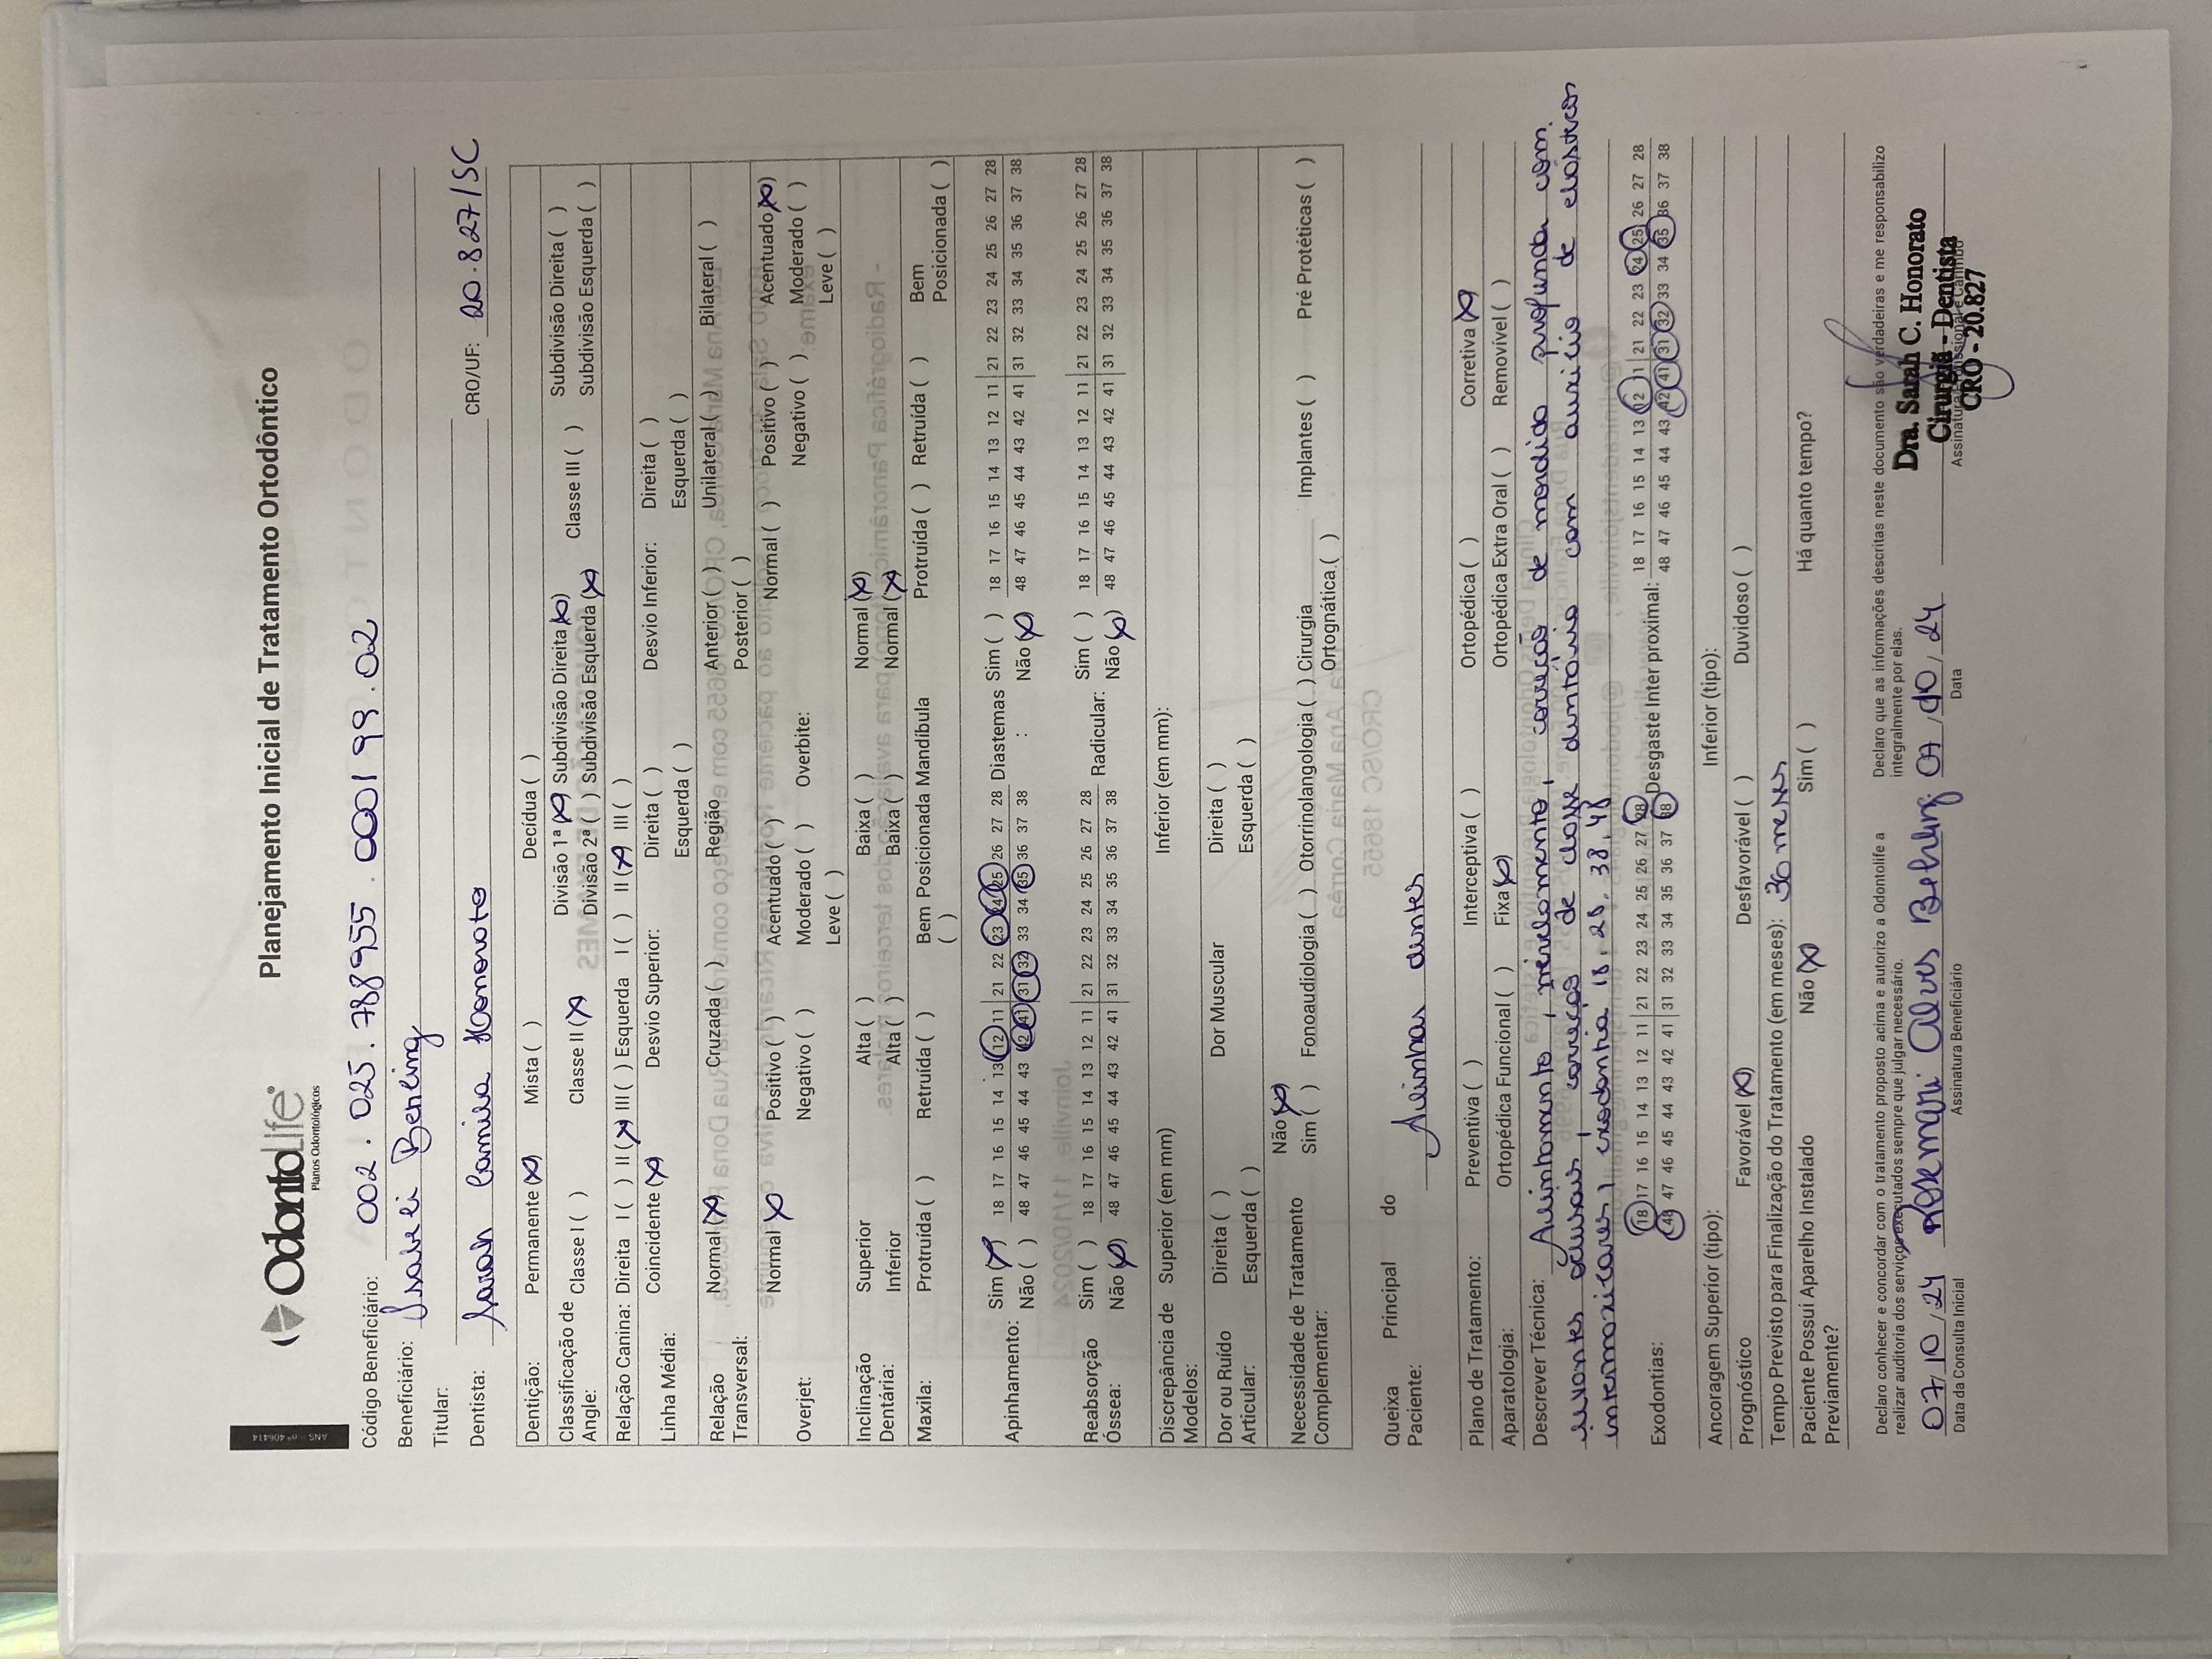 Odontolife®
Planos Odontológicos
Planejamento Inicial de Tratamento Ortodôntico
ANS - nº 406414
Código Beneficiário: 002.025.788955.00199.02
Beneficiário: Isabeli Benling
Titular:
Dentista: Sarah Camila Honorato CRO/UF: 20.827/SC
Dentição: Permanente (X) Mista ( ) Decídua ( )
Classificação de Angle: Classe I ( ) Classe II (X) Divisão 1ª (X) Subdivisão Direita (X) Classe III ( ) Subdivisão Direita ( )
Divisão 2ª ( ) Subdivisão Esquerda (X) Subdivisão Esquerda ( )
Relação Canina: Direita I ( ) II (X) III ( ) Esquerda I ( ) II (X) III ( )
Linha Média: Coincidente (X) Desvio Superior: Direita ( ) Desvio Inferior: Direita ( )
Esquerda ( ) Esquerda ( )
Relação Transversal: Normal (X) Cruzada ( ) Região Anterior ( ) Unilateral ( ) Bilateral ( )
Posterior ( )
Overjet: Normal (X) Positivo ( ) Acentuado ( ) Overbite: Normal ( ) Positivo ( ) Acentuado (X)
Negativo ( ) Moderado ( ) Negativo ( ) Moderado ( )
Leve ( ) Leve ( )
Inclinação Dentária: Superior Alta ( ) Baixa ( ) Normal (X)
Inferior Alta ( ) Baixa ( ) Normal (X)
Maxila: Protruída ( ) Retruída ( ) Bem Posicionada ( ) Mandíbula Protruída ( ) Retruída ( ) Bem Posicionada ( )
Apinhamento: Sim (X) 18 17 16 15 14 13 12 11 | 21 22 23 24 25 26 27 28 Diastemas : Sim ( ) 18 17 16 15 14 13 12 11 | 21 22 23 24 25 26 27 28
Não ( ) 48 47 46 45 44 43 42 41 | 31 32 33 34 35 36 37 38 Não (X) 48 47 46 45 44 43 42 41 | 31 32 33 34 35 36 37 38
Reabsorção Óssea: Sim ( ) 18 17 16 15 14 13 12 11 | 21 22 23 24 25 26 27 28 Radicular: Sim ( ) 18 17 16 15 14 13 12 11 | 21 22 23 24 25 26 27 28
Não (X) 48 47 46 45 44 43 42 41 | 31 32 33 34 35 36 37 38 Não (X) 48 47 46 45 44 43 42 41 | 31 32 33 34 35 36 37 38
Discrepância de Modelos: Superior (em mm) Inferior (em mm):
Dor ou Ruído Articular: Direita ( ) Dor Muscular Direita ( )
Esquerda ( ) Esquerda ( )
Necessidade de Tratamento Complementar: Não (X)
Sim ( ) Fonoaudiologia ( ) Otorrinolangologia ( ) Cirurgia Ortognática ( ) Implantes ( ) Pré Protéticas ( )
Queixa Principal do Paciente: Alinhar dentes
Plano de Tratamento: Preventiva ( ) Interceptiva ( ) Ortopédica ( ) Corretiva (X)
Aparatologia: Ortopédica Funcional ( ) Fixa (X) Ortopédica Extra Oral ( ) Removível ( )
Descrever Técnica: Alinhamento, nivelamento, correção de mordida profunda com
levantes oclusais, correção de classe dentária com auxício de elásticos
intermaxilares, exodontia 18, 28, 38, 48
Exodontias: 18 17 16 15 14 13 12 11 | 21 22 23 24 25 26 27 28 Desgaste Inter proximal: 18 17 16 15 14 13 12 11 | 21 22 23 24 25 26 27 28
48 47 46 45 44 43 42 41 | 31 32 33 34 35 36 37 38 48 47 46 45 44 43 42 41 31 32 33 34 35 36 37 38
Ancoragem Superior (tipo): Inferior (tipo):
Prognóstico Favorável (X) Desfavorável ( ) Duvidoso ( )
Tempo Previsto para Finalização do Tratamento (em meses): 30 meses
Paciente Possui Aparelho Instalado Previamente? Não (X) Sim ( ) Há quanto tempo?
Declaro conhecer e concordar com o tratamento proposto acima e autorizo a Odontolife a
realizar auditoria dos serviços executados sempre que julgar necessário.
Declaro que as informações descritas neste documento são verdadeiras e me responsabilizo
integralmente por elas.
07/10/24 Rosemari Alves Behling 07/10/24
Data da Consulta Inicial Assinatura Beneficiário Data
Dra. Sarah C. Honorato
Cirurgiã - Dentista
CRO - 20.827